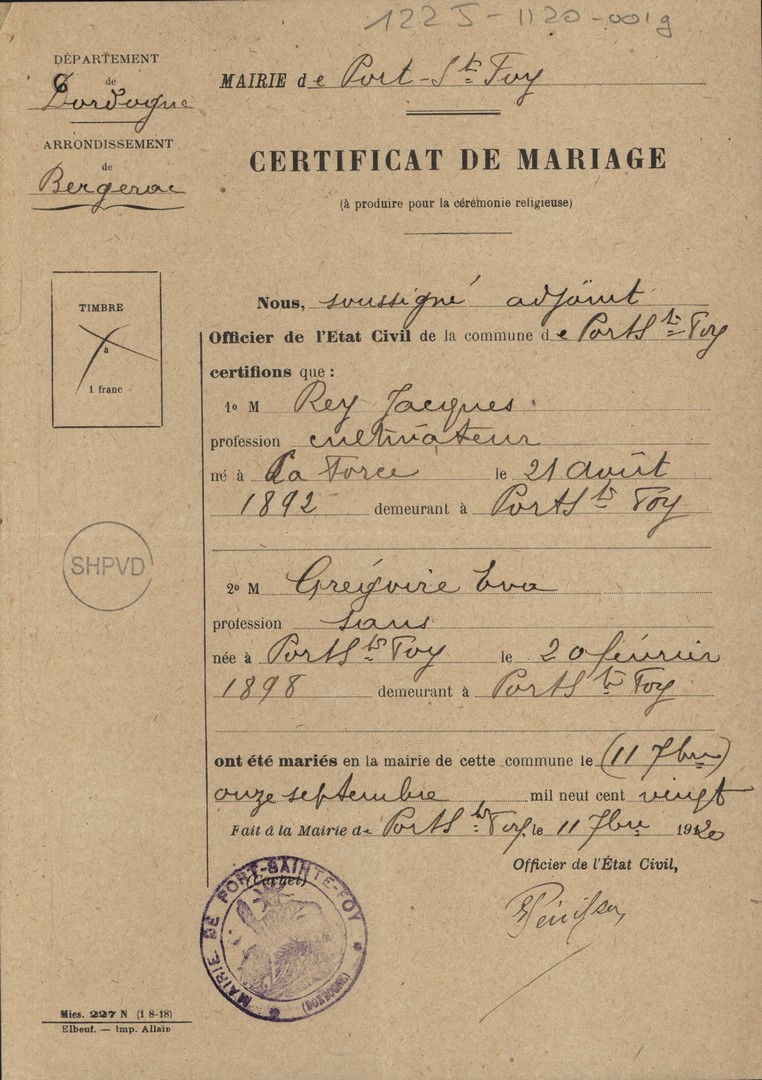 122 J-1120-001g
DÉPARTEMENT
de
Dordogne
ARRONDISSEMENT
de
Bergerac
MAIRIE de Port-Ste Foy
CERTIFICAT DE MARIAGE
(à produire pour la cérémonie religieuse)
TIMBRE
à
1 franc
SHPVD
Nous, soussigné adjoint
Officier de l'Etat Civil de la commune de Port Ste Foy
certifions que :
1o M Rey Jacques
profession cultivateur
né à La Force le 21 août
1892 demeurant à Port Ste Foy
2o M Grégoire Eva
profession sans
née à Port Ste Foy le 20 février
1898 demeurant à Port Ste Foy
ont été mariés en la mairie de cette commune le (11 7bre)
onze septembre mil neuf cent vingt
Fait à la Mairie de Port Ste Foy, le 11 7bre 1920
Officier de l'État Civil,
(Cachet)
MAIRIE DE PORT-SAINTE-FOY
(DORDOGNE)
Mies. 227 N (1 8-18)
Elbeuf. — Imp. Allain